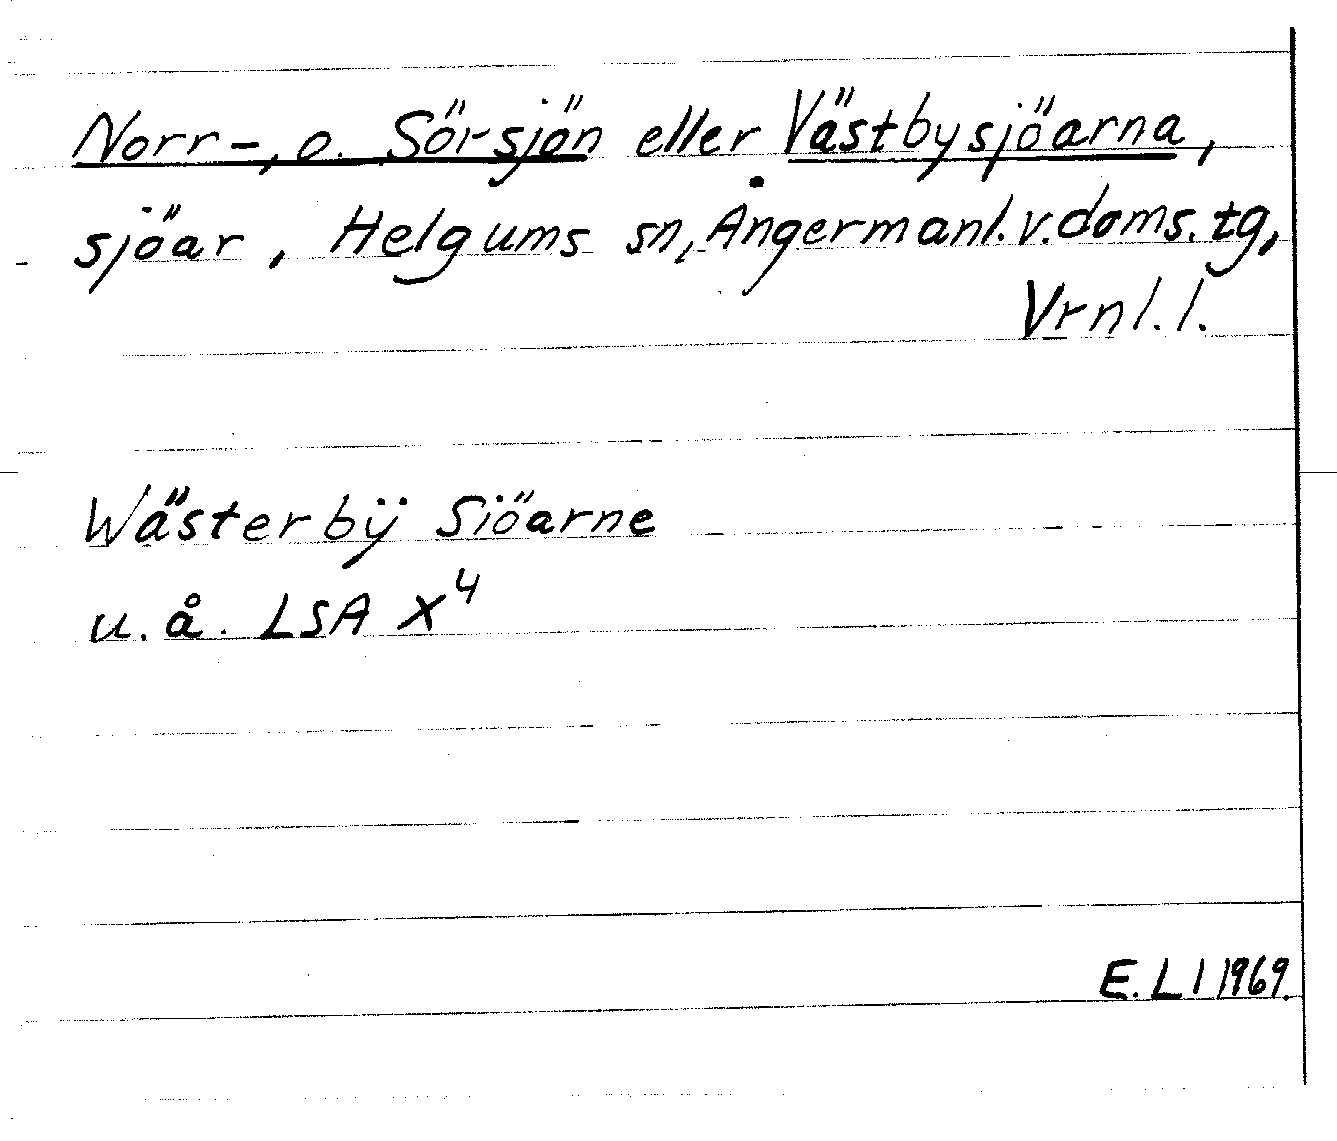 Norr-, o. Sörsjön eller Västbysjöarna,
sjöar, Helgums sn, Ångermanl. v. doms. tg,
Vrnl. l.
Wästerbÿ Siöarne
u. å. LSA X⁴
E. L l 1969.